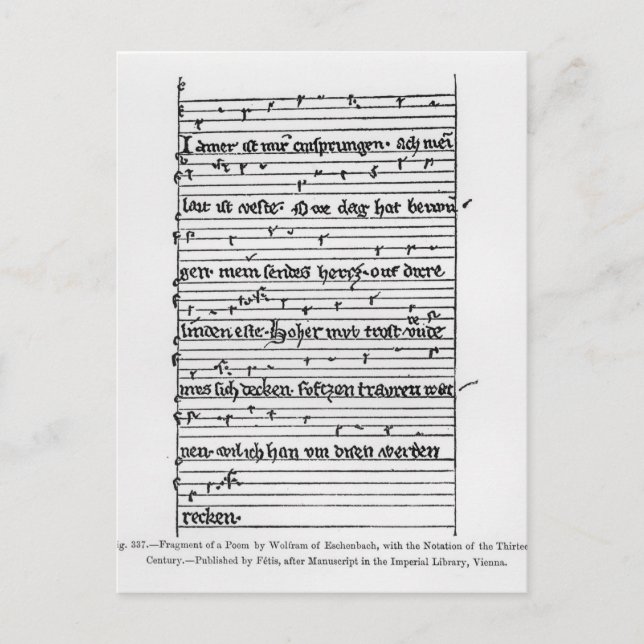 Iamer ist mir entsprungen. Ach mei
lait ist veste. Owe dag hat betwu
gen. mein sendes hercz. ouf dicre
linden este. Hoher mut trost
mes sich decken. Softzen trauren wei
nen. wil ich han um disen werten
recken.
ig. 337.—Fragment of a Poem by Wolfram of Eschenbach, with the Notation of the Thirtee
Century.—Published by Fétis, after Manuscript in the Imperial Library, Vienna.